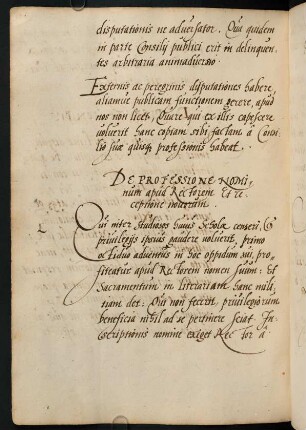 disputationis ne adversator. Qui quidem
in parte Consilij publici erit in delinquen,
tes arbitraria animadversio.
Externis ac peregrinis disputationes habere,
aliamve publicam functionem gerere, apud
nos non licet, Quare qui ex illis capescere
voluerit hanc copiam sibi factam à Consi,
lio suae quisq professionis habeat.
DE PROFESSIONE NOMI=
num apud Rectorem et re
ceptione novorum.
Qui inter Studiosos huius Scholae censeri, &
privilegijs ipsius gaudere voluerit, primo
octiduo adventus in hoc oppidum sui, pro,
fiteatur apud Rectorem nomen suum: et
Sacramentum in literariam hanc mili,
tiam det: Qui non fecerit, privilegiorum
beneficia nihil ad se pertinere sciat. In,
scriptionis nomine exiget Rector à